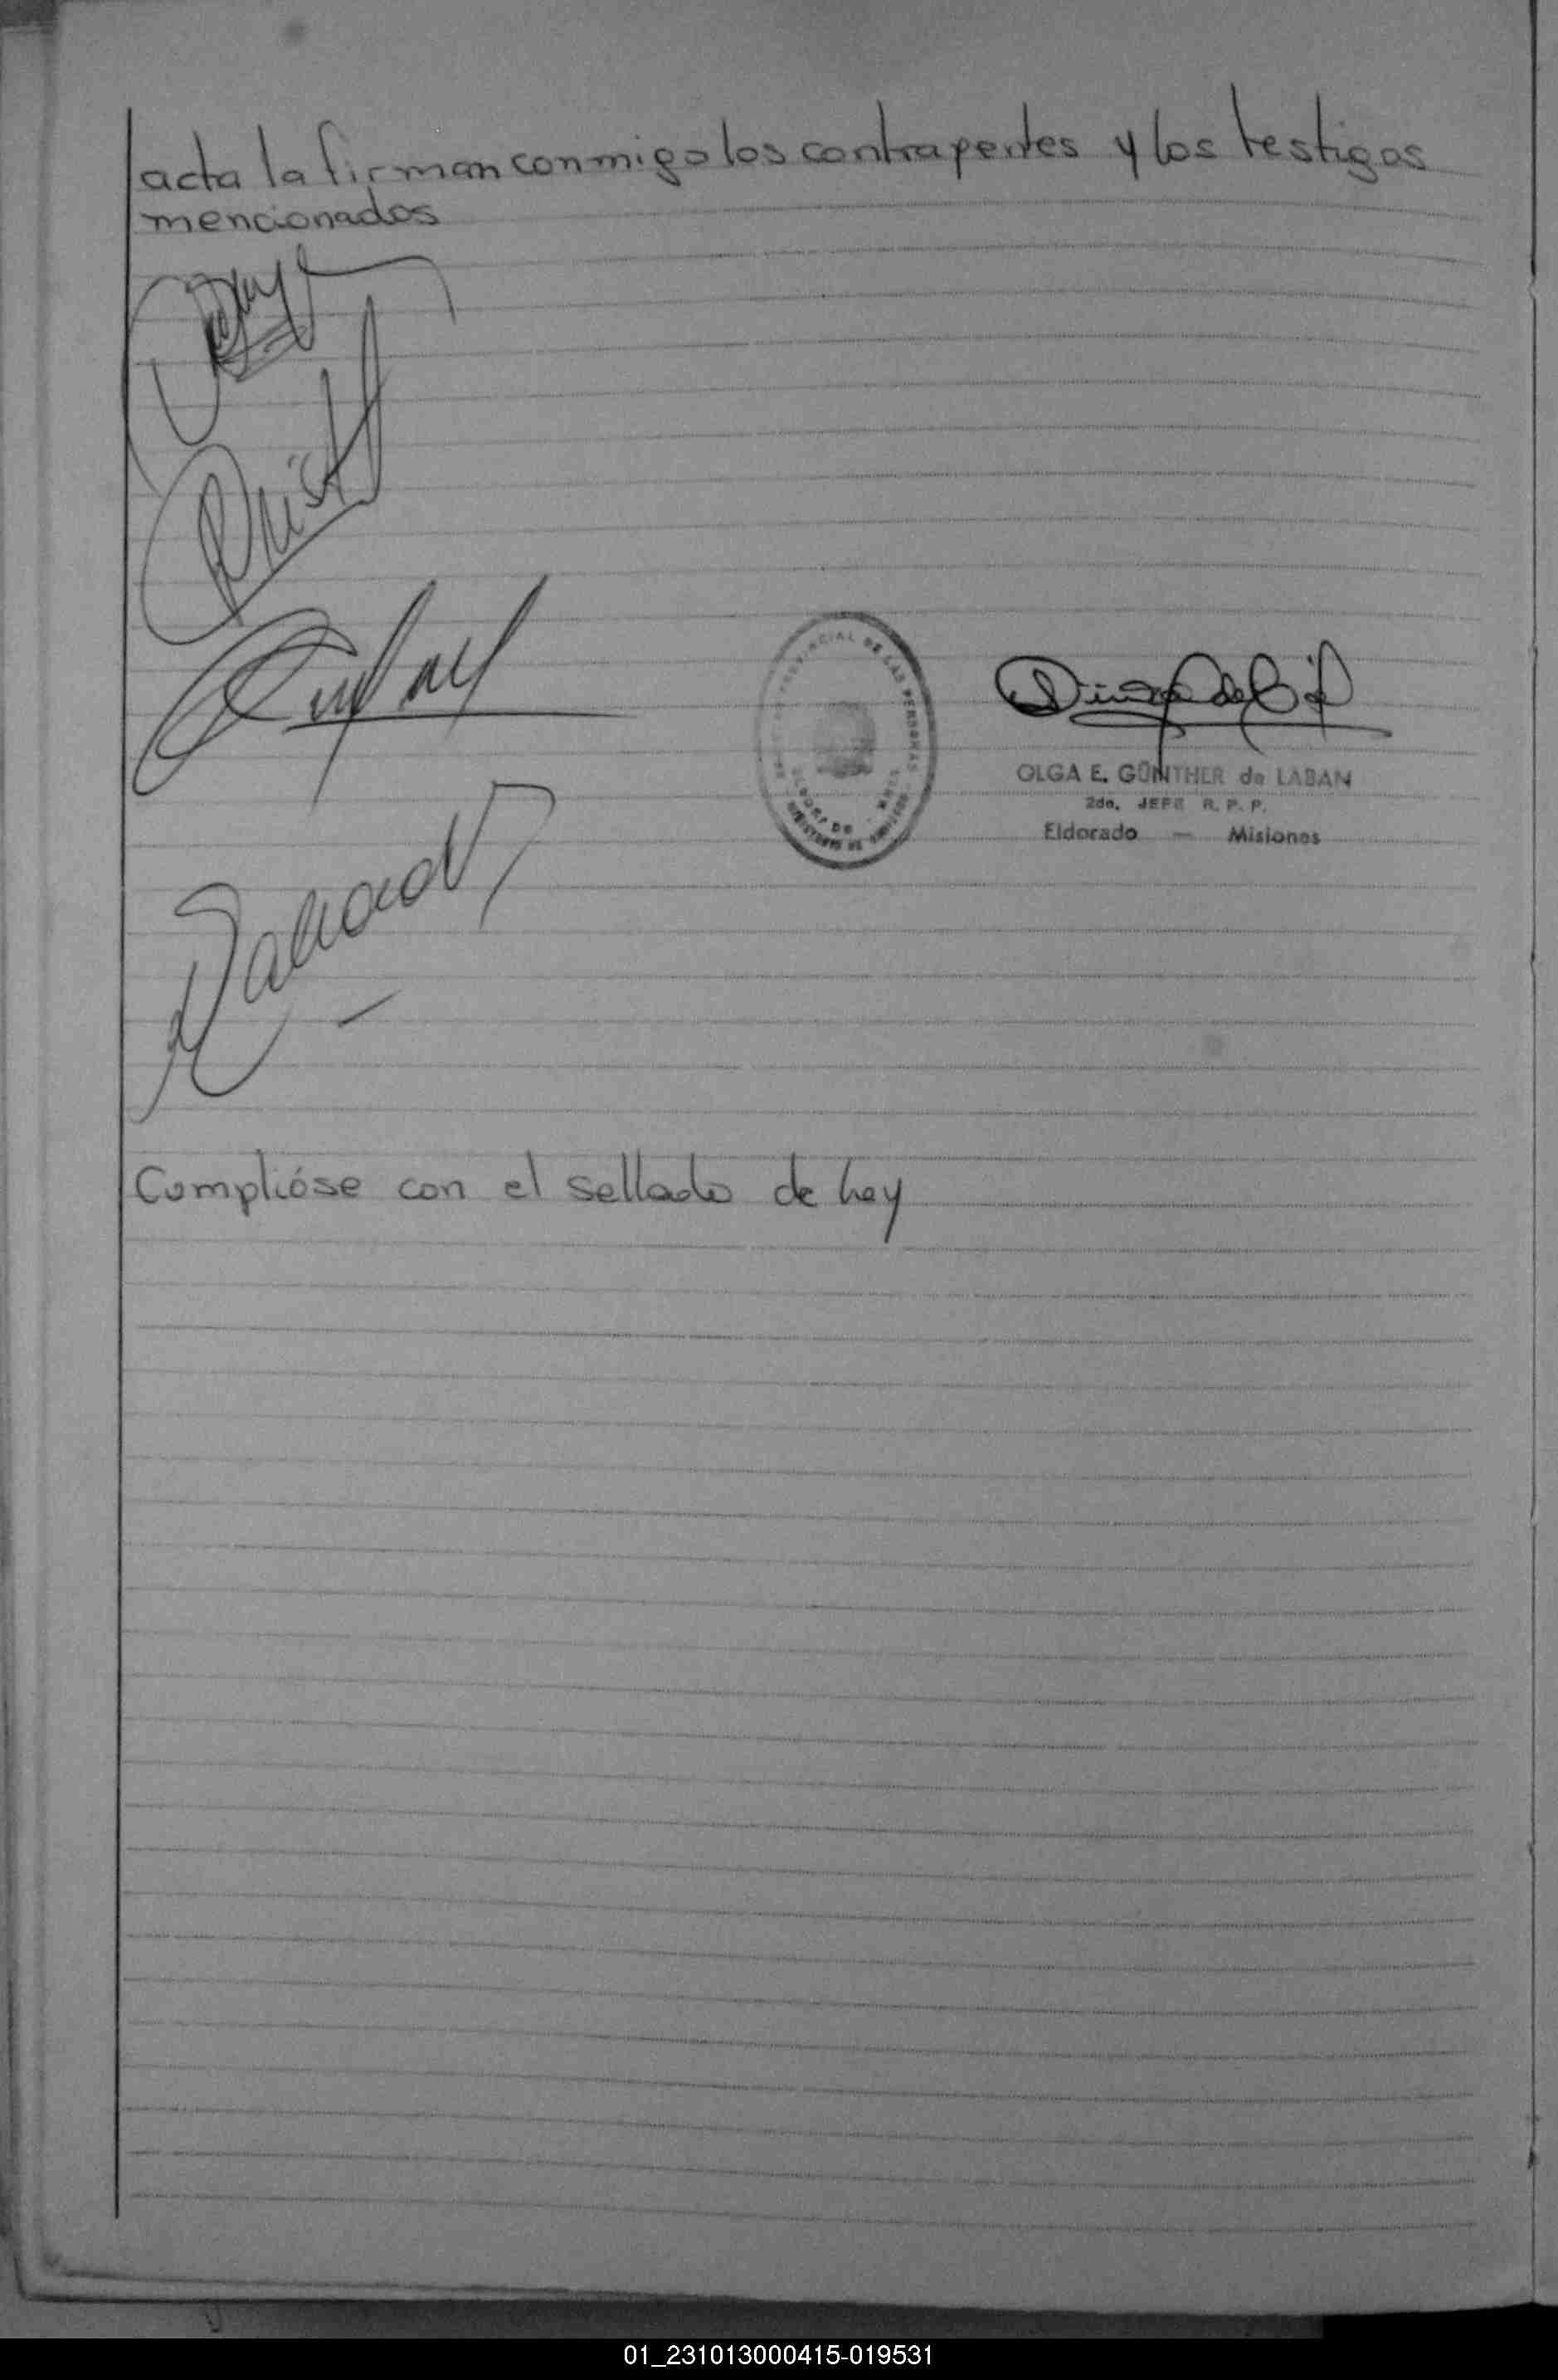 acta la firman conmigo los contrapentes y los testigos
mencionados
PROVINCIAL DE LAS PERSONAS
OLGA E. GÜNTHER de LABAN
2do. JEFE R. P. P.
Eldorado — Misiones
Cumplióse con el sellado de ley
01_231013000415-019531